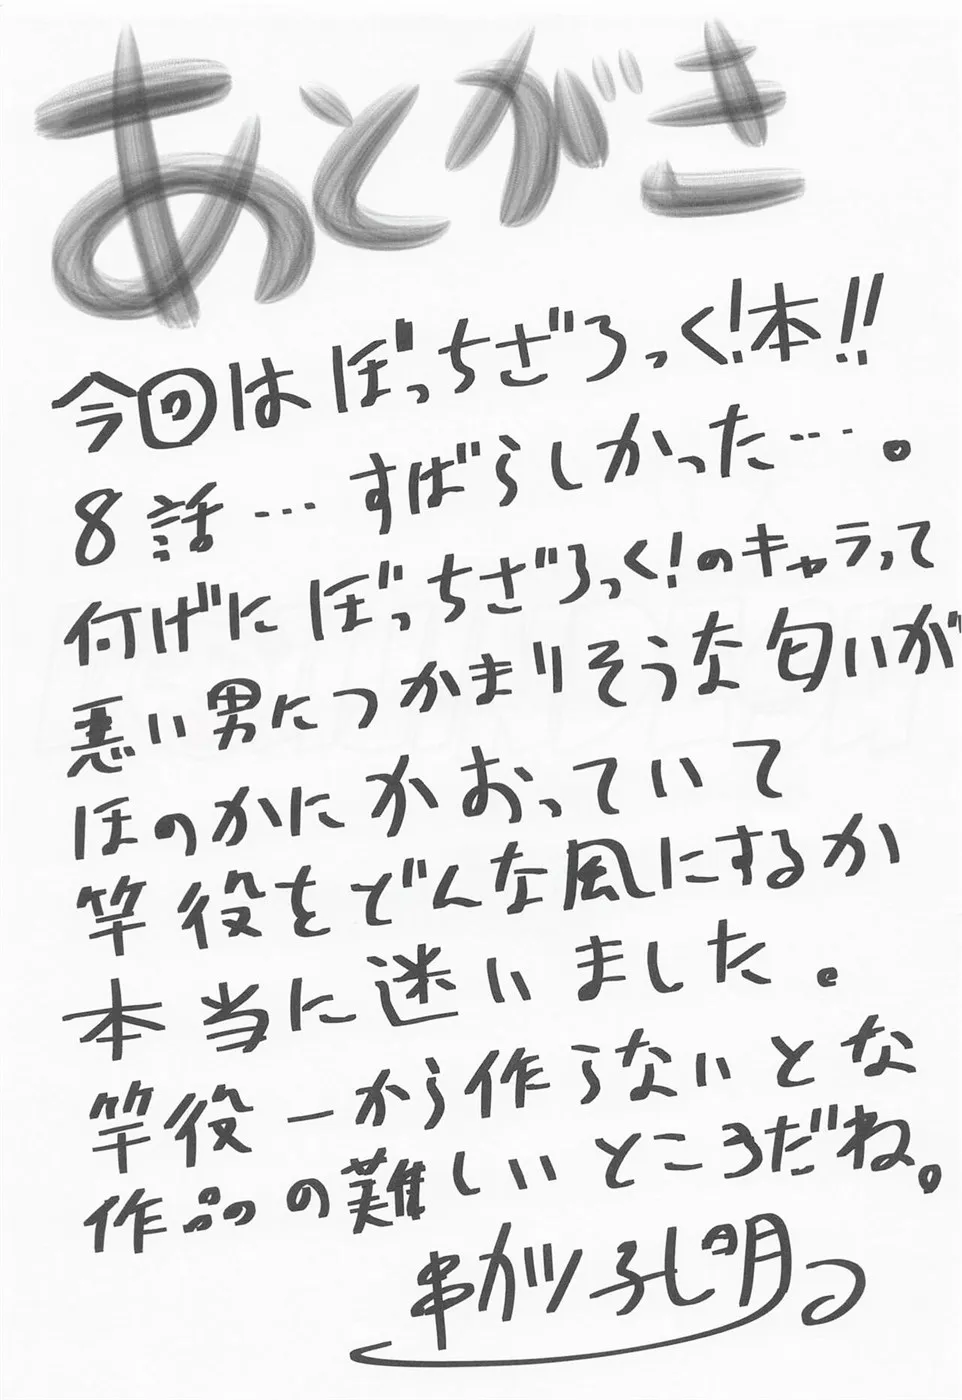 あとがき
今回はぼっちざろっく!本!!
8話…すばらしかった…。
何げにぼっちざろっく!のキャラって
悪い男につかまりそうな匂いが
ほのかにかおっていて
竿役をどんな風にするか
本当に迷いました。
竿役一から作らないとな
作品の難しいところだね。
串カツ孔明